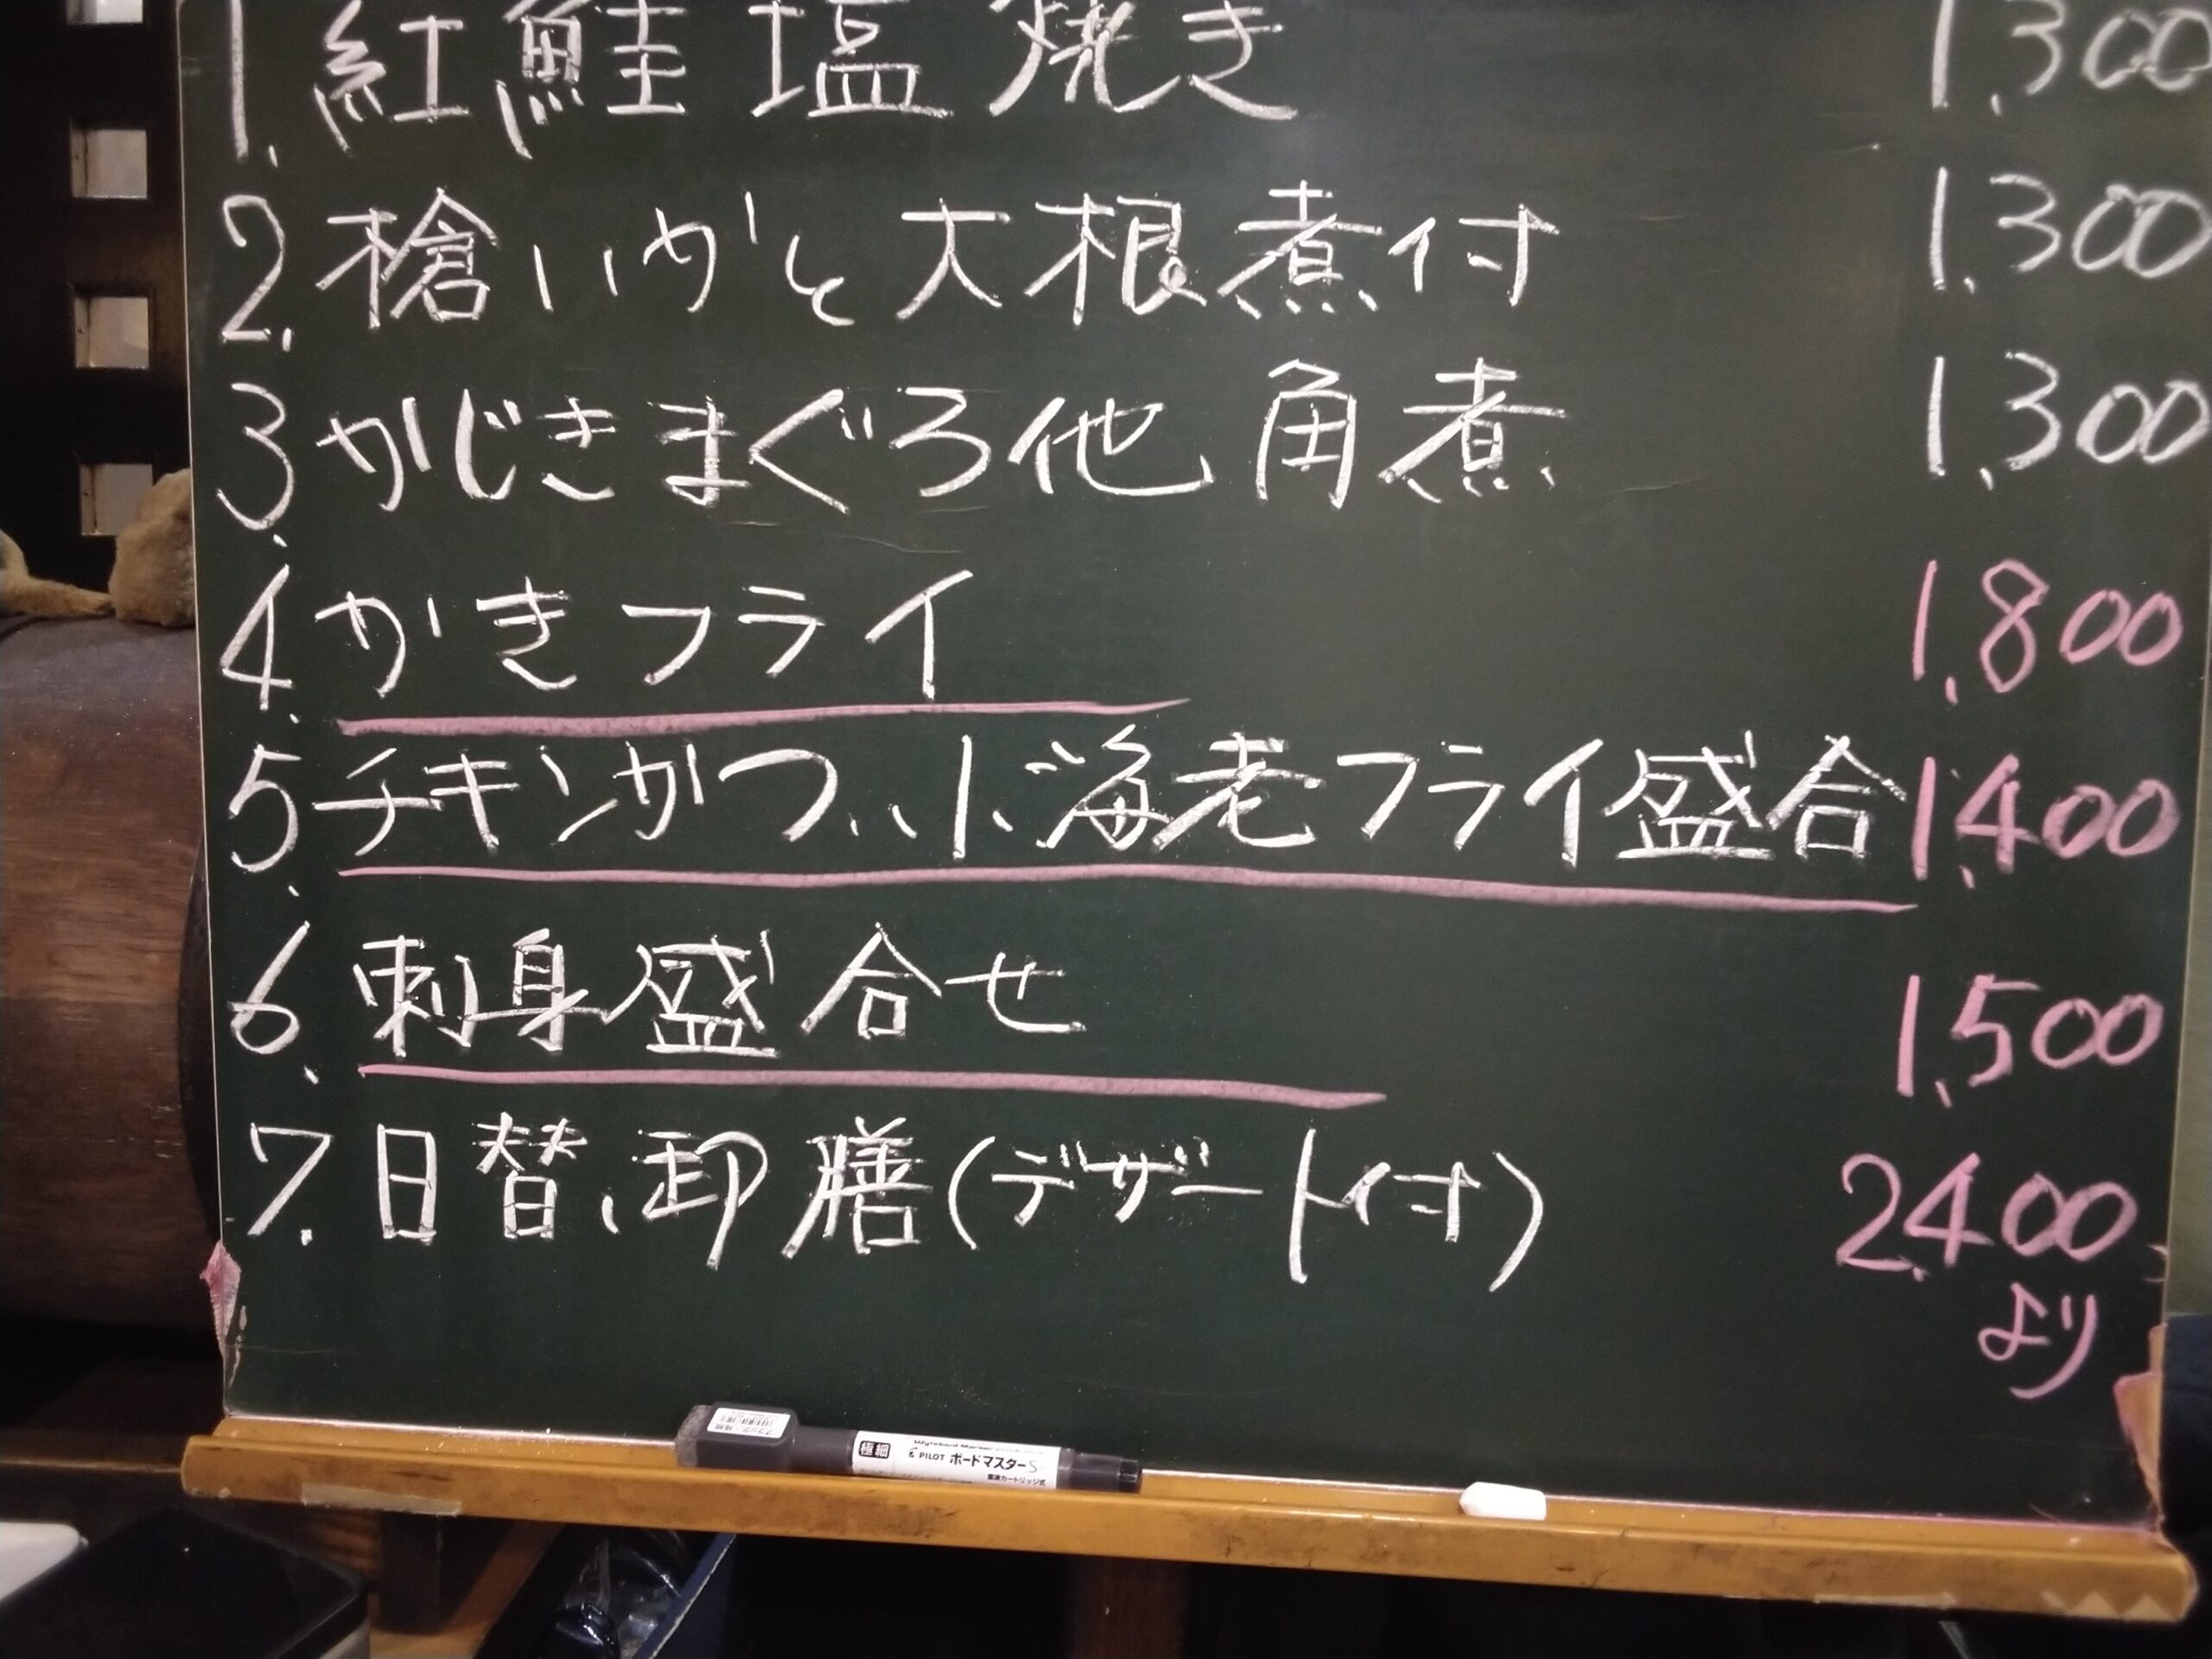 1. 紅鮭塩焼き 1,300
2. 槍いかと大根煮付 1,300
3. かじきまぐろ他 角煮 1,300
4. かきフライ 1,800
5. チキンかつ、小海老フライ盛合 1,400
6. 刺身盛合せ 1,500
7. 日替、卸膳(デザート付) 2,400
より
極細 PILOT ボードマスターS